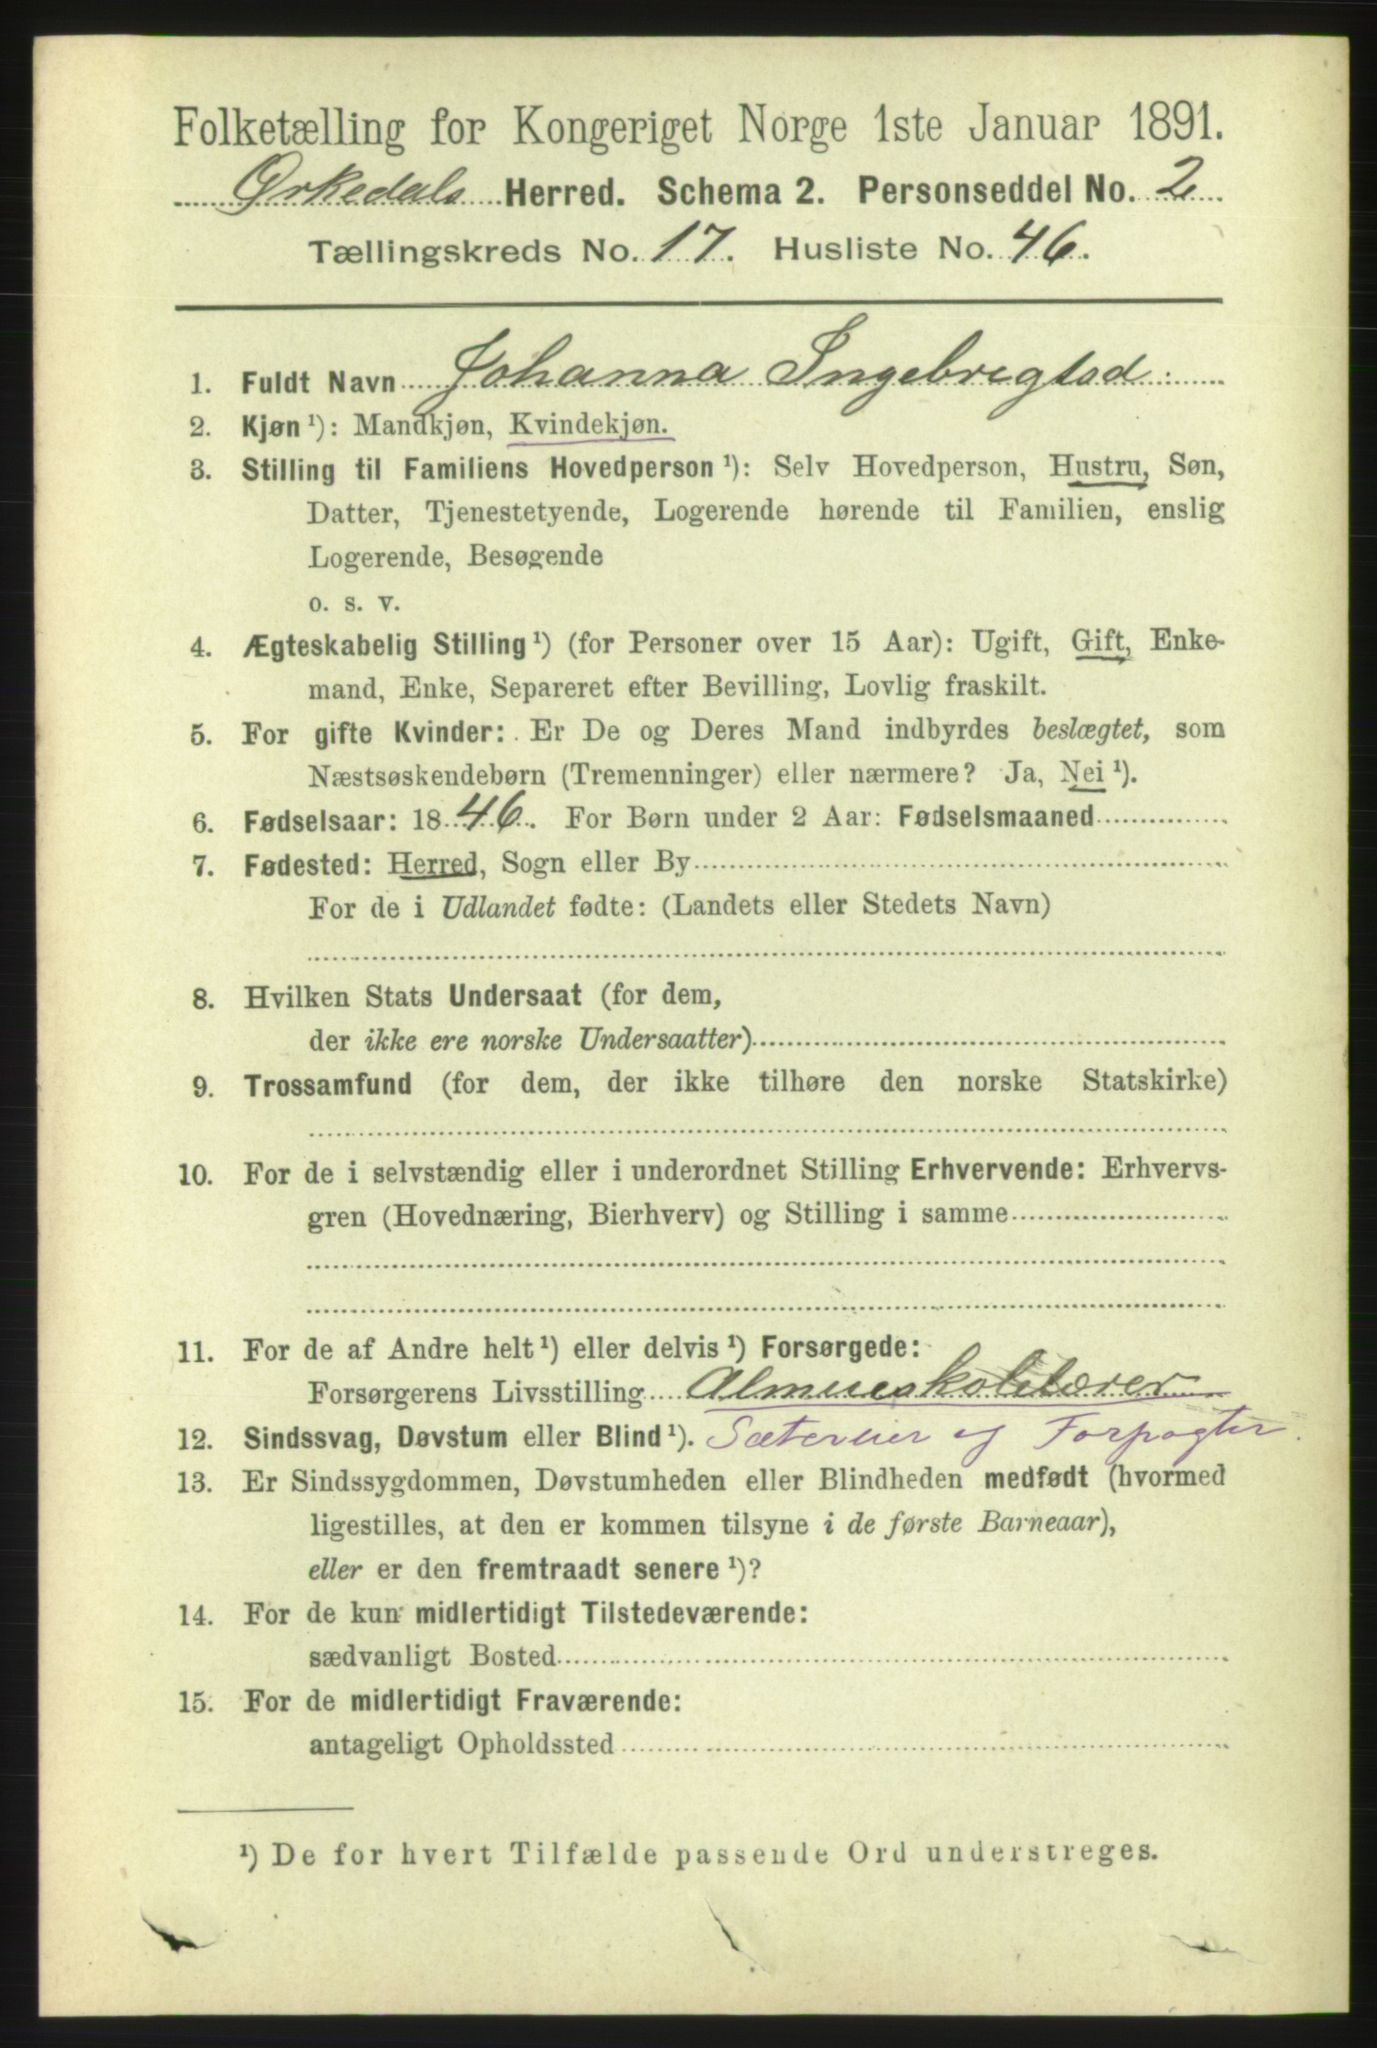 Folketælling for Kongeriget Norge 1ste Januar 1891.
Ørkedals Herred. Schema 2. Personseddel No. 2
Tællingskreds No. 17. Husliste No. 46.
1. Fuldt Navn Johanna Ingebrigtsd.
2. Kjøn ¹): Mandkjøn, Kvindekjøn.
3. Stilling til Familiens Hovedperson ¹): Selv Hovedperson, Hustru, Søn,
Datter, Tjenestetyende, Logerende hørende til Familien, enslig
Logerende, Besøgende
o. s. v.
4. Ægteskabelig Stilling ¹) (for Personer over 15 Aar): Ugift, Gift, Enke-
mand, Enke, Separeret efter Bevilling, Lovlig fraskilt.
5. For gifte Kvinder: Er De og Deres Mand indbyrdes beslægtet, som
Næstsøskendebørn (Tremenninger) eller nærmere? Ja, Nei ¹).
6. Fødselsaar: 1846. For Børn under 2 Aar: Fødselsmaaned
7. Fødested: Herred, Sogn eller By
For de i Udlandet fødte: (Landets eller Stedets Navn)
8. Hvilken Stats Undersaat (for dem,
der ikke ere norske Undersaatter)
9. Trossamfund (for dem, der ikke tilhøre den norske Statskirke)
10. For de i selvstændig eller i underordnet Stilling Erhvervende: Erhvervs-
gren (Hovednæring, Bierhverv) og Stilling i samme
11. For de af Andre helt ¹) eller delvis ¹) Forsørgede:
Forsørgerens Livsstilling Almueskolelærer
12. Sindssvag, Døvstum eller Blind ¹). Sætereier og Forpagter.
13. Er Sindssygdommen, Døvstumheden eller Blindheden medfødt (hvormed
ligestilles, at den er kommen tilsyne i de første Barneaar),
eller er den fremtraadt senere ¹)?
14. For de kun midlertidigt Tilstedeværende:
sædvanligt Bosted
15. For de midlertidigt Fraværende:
antageligt Opholdssted
¹) De for hvert Tilfælde passende Ord understreges.